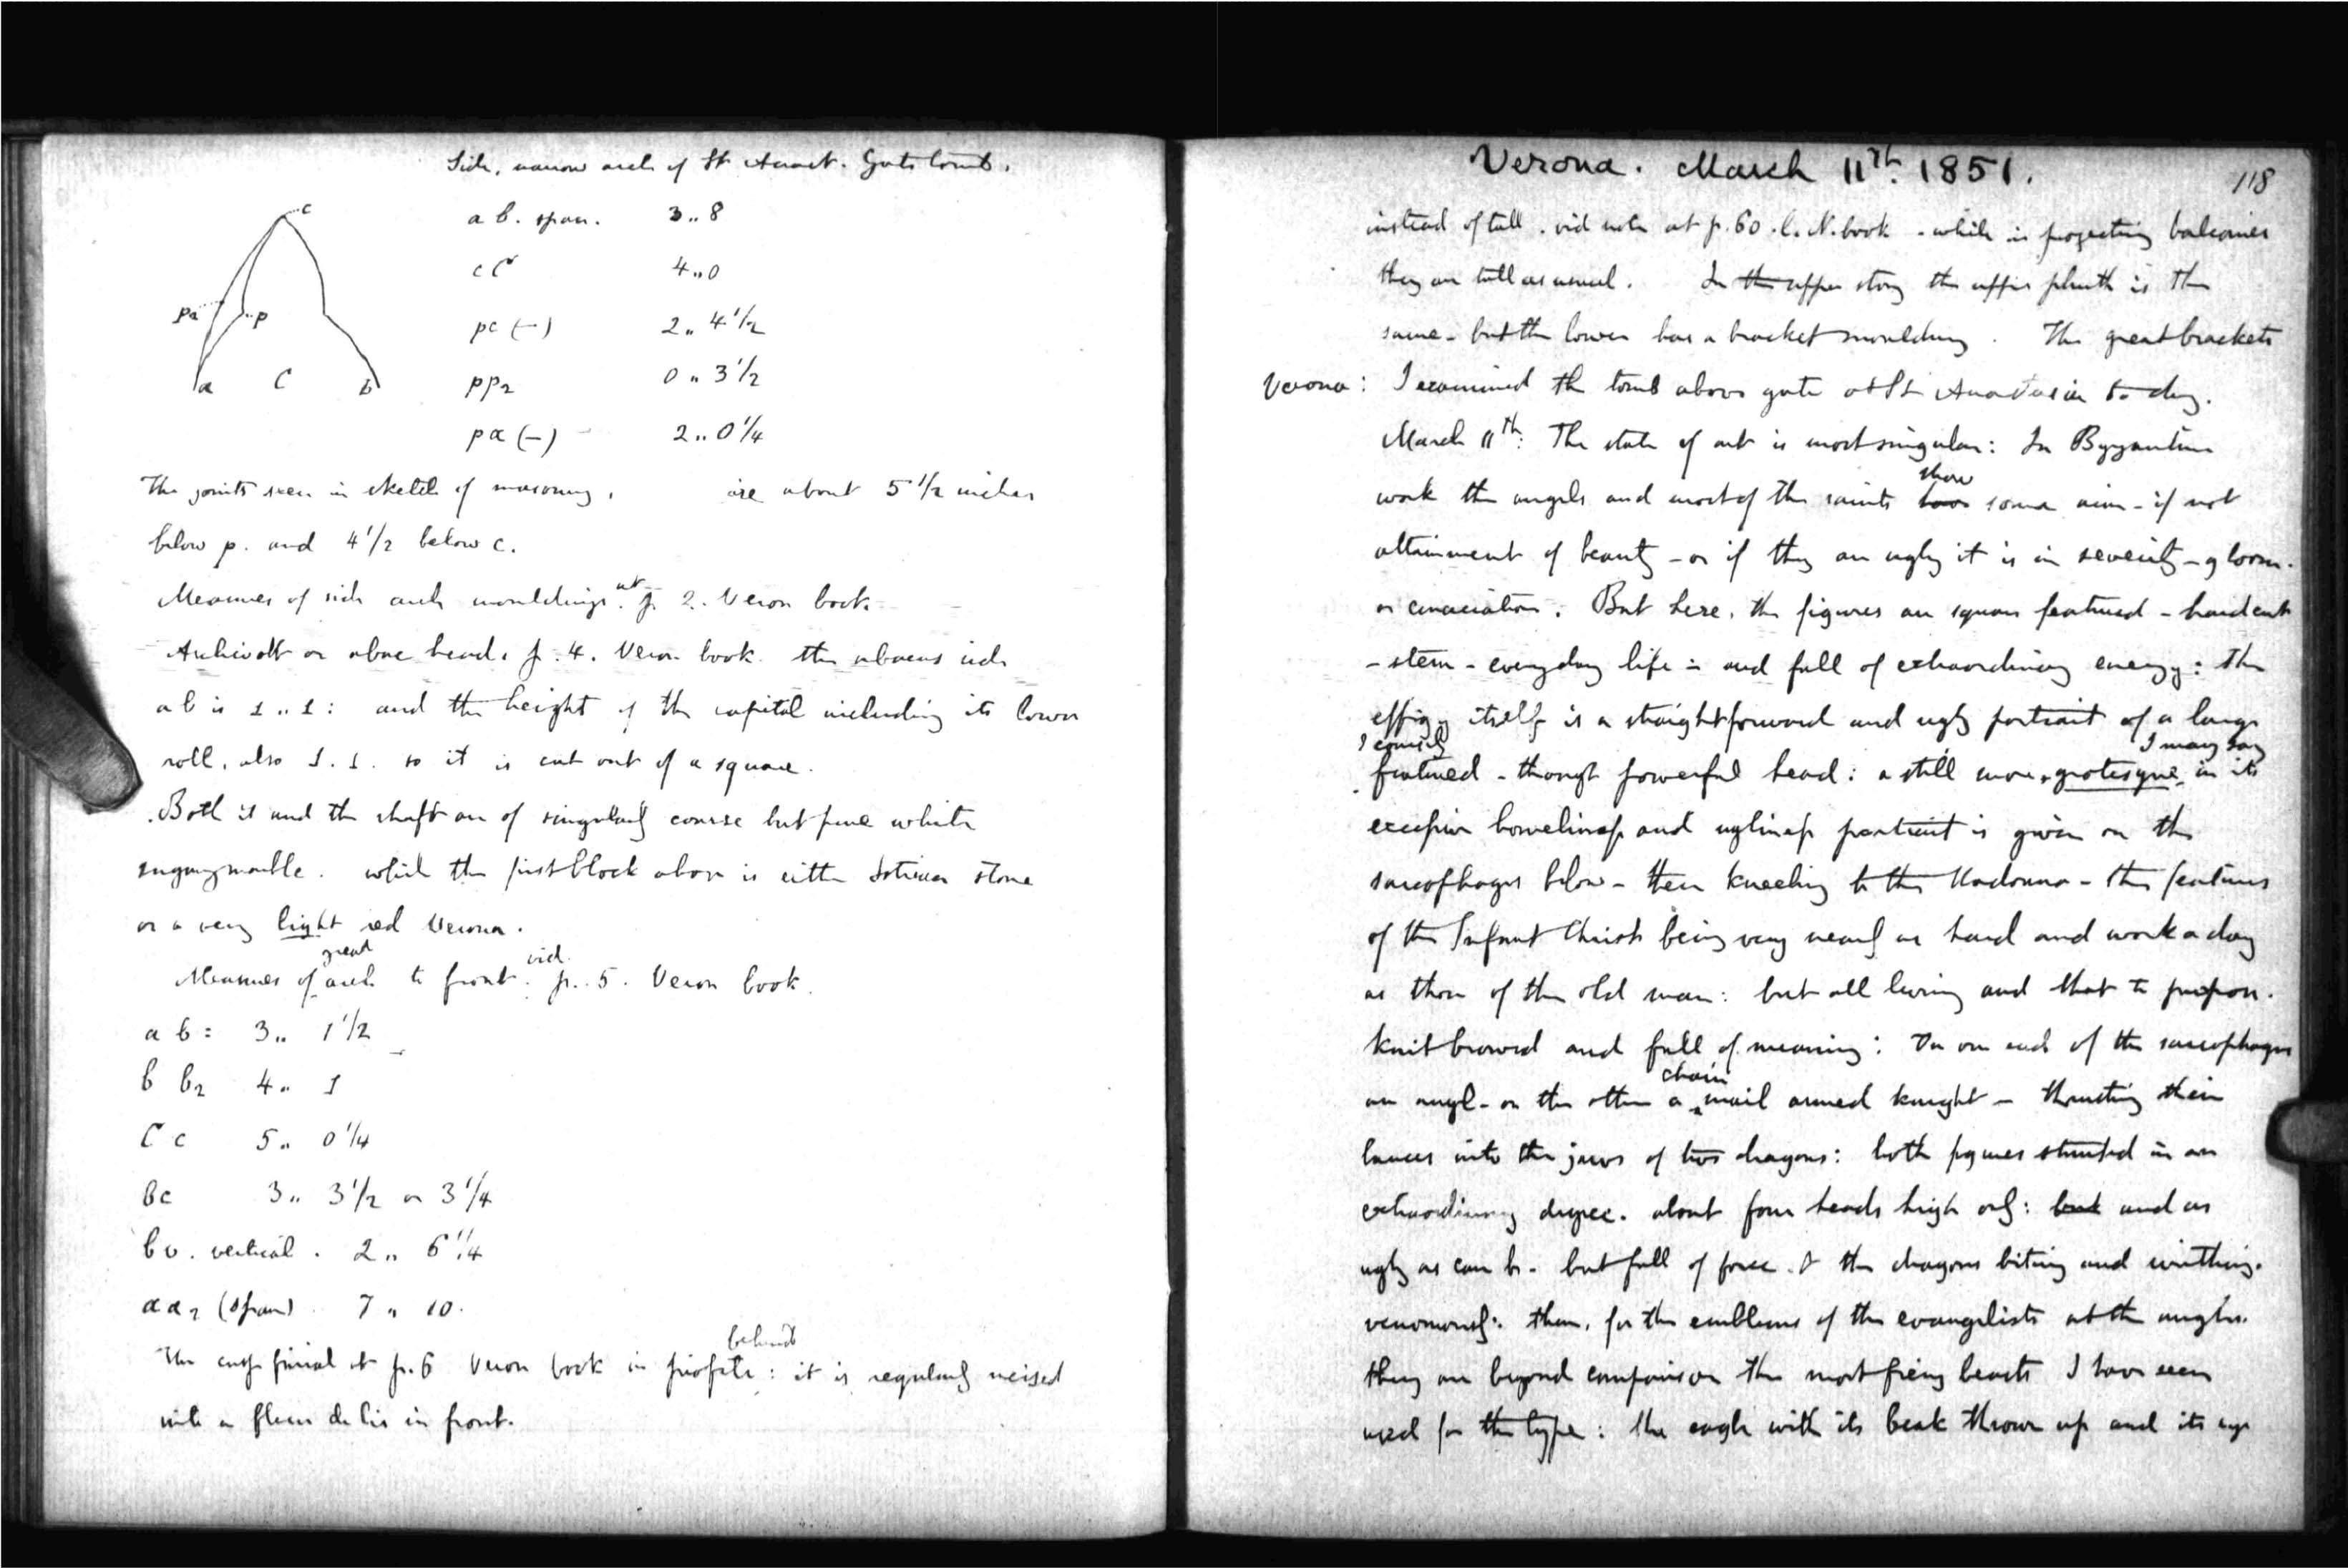 Side, narrow arch of St Anast. Gate tomb.
c
pa
p
a C b
a b. span. 3 .. 8
c C 4 .. 0
pc (-) 2 .. 4 1/2
pp2 0 .. 3 1/2
pa (-) 2 .. 0 1/4
The joints seen in sketch of masonry, are about 5 1/2 inches
below p. and 4 1/2 below c.
Measures of side arch mouldings. at p. 2. Veron book
Archivolt or above head. p. 4. Veron book. the abacus side
a b is 1 .. 1 : and the height of the capital including its lower
roll, also 1. 1. so it is cut out of a square.
Both it and the shaft are of singularly coarse but pure white
sugary marble. while the first block above is either Istrian stone
or a very light red Verona.
Measures of great arch to front. vid. p. 5. Veron book.
a b : 3 .. 1 1/2
b b2 4 .. 1
C c 5 .. 0 1/4
bc 3 .. 3 1/2 or 3 1/4
bv. vertical . 2 .. 6 1/4
a a2 (span) . 7 .. 10.
The cusp finial at p. 6 Veron book in profile : behind it is regularly
with a fleur de lis in front.
Verona. March 11th. 1851.
118
instead of tall . vid note at p. 60 . N. book - while in projecting balconies
they are tall as usual. In the upper story the upper plinth is the
same - but the lower has a bracket moulding . The great brackets
Verona : I examined the tomb above gate at St Anastasia to day.
March 11th: The state of art is most singular : In Byzantine
work the angels and most of the saints have show some aim - if not
attainment of beauty - or if they are ugly it is in severity - gloom.
or emaciation. But here, the figures are square featured - hard cut
- stern - everyday life - and full of extraordinary energy : the
effigy itself is a straightforward and ugly portrait of a large
& coarsely featured - though powerful head : a still more, I may say grotesque, in its
excessive homeliness and ugliness portrait is given on the
sarcophagus below - then kneeling to the Madonna - the features
of the Infant Christ being very nearly as hard and work a day
as those of the old man : but all living and that to purpose.
knit browed and full of meaning : On one end of the sarcophagus
an angel - on the other a chain mail armed knight - thrusting their
lances into the jaws of two dragons : both figures stunted in an
extraordinary degree. about four heads high only : but and as
ugly as can be. but full of force. & the dragons biting and writhing.
venomously : then, for the emblems of the evangelists at the angles.
they are beyond comparison the most fiery beasts I have seen
used for the type : the eagle with its beak thrown up and its eye